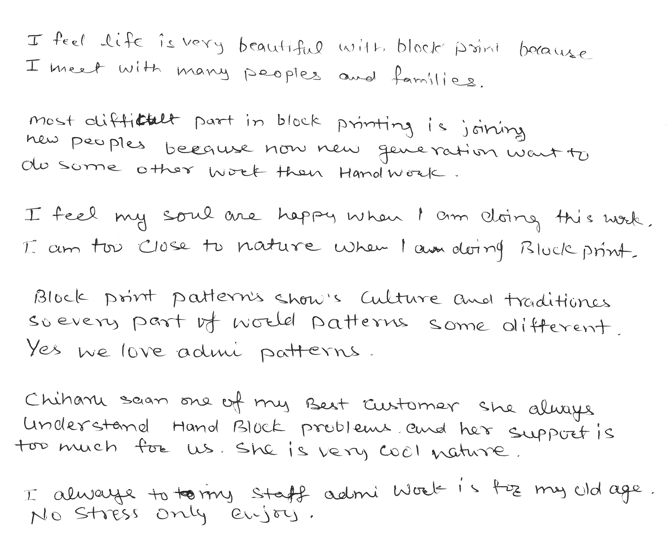 I feel life is very beautiful with block print because
I meet with many peoples and families.
most difficult part in block printing is joining
new peoples because now new generation want to
do some other work then Handwork.
I feel my soul are happy when I am doing this work.
I am too close to nature when I am doing Block print.
Block print pattern's show's culture and traditiones
so every part of world patterns some different.
Yes we love admi patterns.
Chiharu saan one of my Best customer she always
understand Hand Block problems. and her support is
too much for us. she is very cool nature.
I always to to my staff admi work is for my old age.
No stress only enjoy.